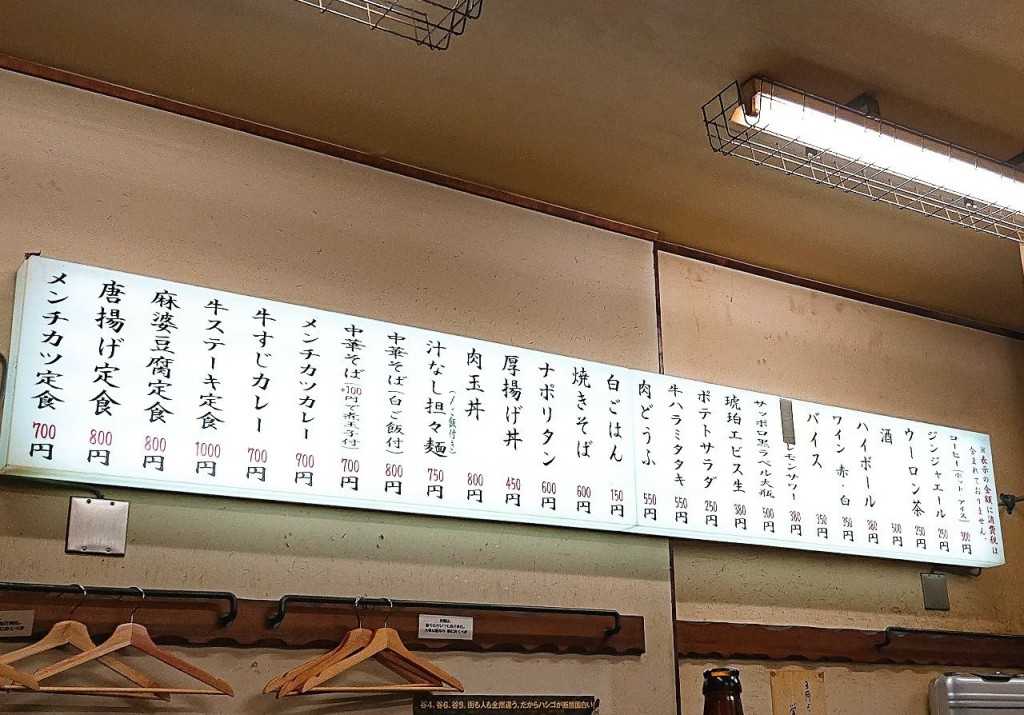 メンチカツ定食 700円
唐揚げ定食 800円
麻婆豆腐定食 800円
牛ステーキ定食 1000円
牛すじカレー 700円
メンチカツカレー 900円
中華そば(+100円で煮玉子付) 700円
中華そば(白ご飯付) 800円
汁なし担々麺 750円
肉玉丼 800円
厚揚げ丼 450円
ナポリタン 600円
焼きそば 600円
白ごはん 150円
肉どうふ 550円
牛ハラミタタキ 550円
ポテトサラダ 250円
琥珀エビス生 380円
サッポロ黒ラベル大瓶 500円
レモンサワー 380円
バイス 350円
ワイン 赤・白 350円
ハイボール 380円
酒 500円
ウーロン茶 250円
ジンジャエール 250円
コーヒー(ホット・アイス) 300円
※表示の金額に消費税は
含まれておりません。
谷4、谷6、谷9、街も人も全然違う。だからハシゴが断然面白い